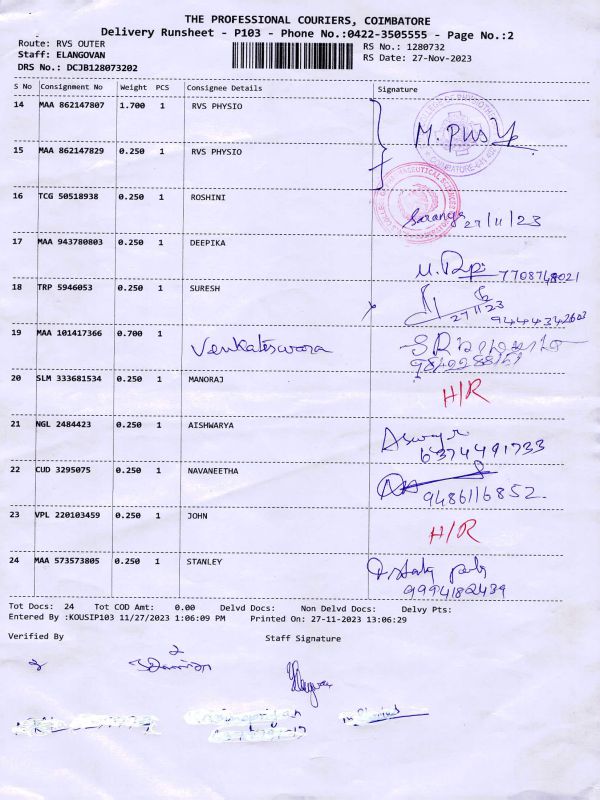 THE PROFESSIONAL COURIERS, COIMBATORE
Delivery Runsheet - P103 - Phone No.:0422-3505555 - Page No.:2
Route: RVS OUTER RS No.: 1280732
Staff: ELANGOVAN RS Date: 27-Nov-2023
DRS No.: DCJB128073202
S No Consignment No Weight PCS Consignee Details Signature
14 MAA 862147807 1.700 1 RVS PHYSIO
15 MAA 862147829 0.250 1 RVS PHYSIO
16 TCG 50518938 0.250 1 ROSHINI
Saranya 27/11/23
17 MAA 943780803 0.250 1 DEEPIKA
7708748021
18 TRP 5946053 0.250 1 SURESH
27/11/23
9444342603
19 MAA 101417366 0.700 1 Venkateswara
20 SLM 333681534 0.250 1 MANORAJ H/R
21 NGL 2484423 0.250 1 AISHWARYA
6374491733
22 CUD 3295075 0.250 1 NAVANEETHA
9486116852.
23 VPL 220103459 0.250 1 JOHN H/R
24 MAA 573573805 0.250 1 STANLEY
9994182439
Tot Docs: 24 Tot COD Amt: 0.00 Delvd Docs: Non Delvd Docs: Delvy Pts:
Entered By :KOUSIP103 11/27/2023 1:06:09 PM Printed On: 27-11-2023 13:06:29
Verified By Staff Signature